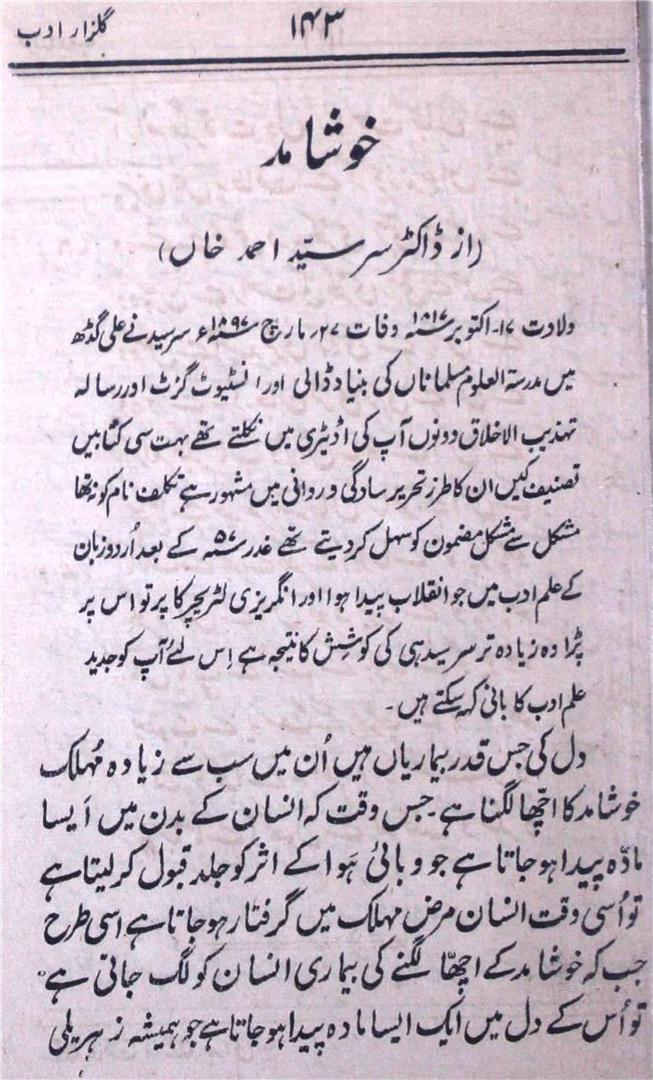 گلزار ادب
۱۴۳
خوشامد
(از ڈاکٹر سر سیّد احمد خاں)
ولادت ۱۷۔ اکتوبر ۱۸۱۷ء وفات ۲۷ مارچ ۱۸۹۷ء سرسید نے علی گڈھ
میں مدرسۃ العلوم مسلماناں کی بنیاد ڈالی اور انسٹیوٹ گزٹ اور رسالہ
تہذیب الاخلاق دونوں آپ کی اڈیٹری میں نکلتے تھے بہت سی کتابیں
تصنیف کیں ان کا طرز تحریر سادگی و روانی میں مشہور ہے تکلف نام کو نہ تھا
مشکل سے مشکل مضمون کو سہل کر دیتے تھے غدر ۵۷ء کے بعد اُردو زبان
کے علم ادب میں جو انقلاب پیدا ہوا اور انگریزی لٹریچر کا پرتو اس پر
پڑا وہ زیادہ تر سرسید ہی کی کوشش کا نتیجہ ہے اِس لئے آپ کو جدید
علم ادب کا بانی کہہ سکتے ہیں۔
دل کی جس قدر بیماریاں ہیں اُن میں سب سے زیادہ مُہلک
خوشامد کا اچھّا لگنا ہے۔ جس وقت کہ انسان کے بدن میں اَیسا
مادّہ پیدا ہو جاتا ہے جو وبائی ہَوا کے اثر کو جلد قبول کر لیتا ہے
تو اُسی وقت انسان مرض مہلک میں گرفتار ہو جاتا ہے اسی طرح
جب کہ خوشامد کے اچھّا لگنے کی بیماری انسان کو لگ جاتی ہے
تو اُس کے دل میں ایک ایسا مادہ پیدا ہو جاتا ہے جو ہمیشہ زہریلی